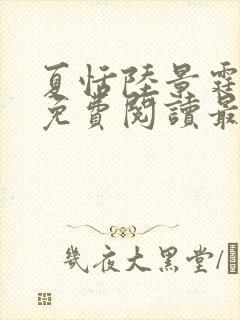 夏恬陸景霆
免費閱讀最
幾夜大黑堂/